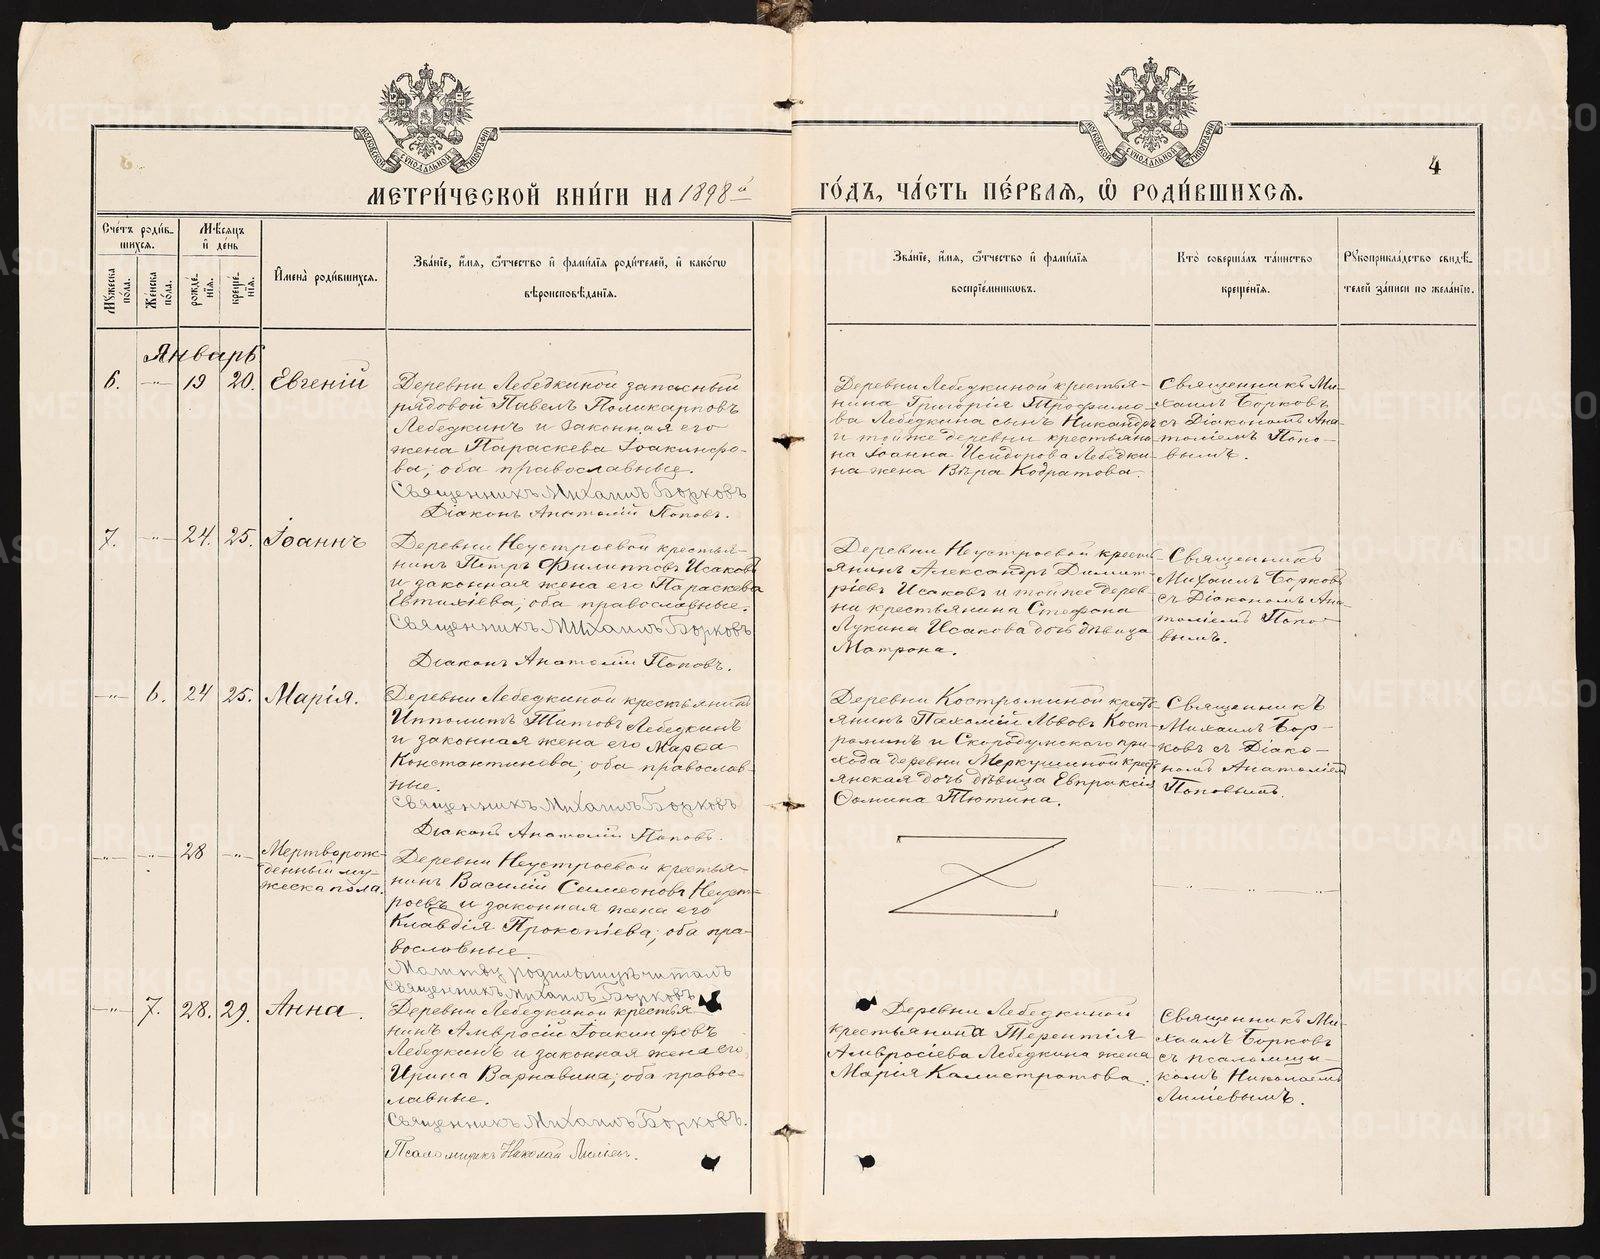 4
МЕТРИ́ЧЕСКОЙ КНИ́ГИ НА 1898 й
ГО́ДЪ, ЧА́СТЬ ПЕ́РВАЯ, Ѿ РОДИ́ВШИХСѦ.
Сче́тъ роди́в-
шихсѧ.
Мѣ́сяцъ
и де́нь
Мꙋжеска по́ла.
Же́нска по́ла.
рожде́нїѧ.
креще́нїѧ.
Имена̀ роди́вшихсѧ.
Зва́нїе, и́мѧ, ѻ́тчество и фами́лїѧ роди́телей, и како́гѡ
вѣроисповѣ́данїѧ.
Зва́нїе, и́мѧ, ѻ́тчество и фами́лїѧ
воспрїе́мникѡвъ.
Кто̀ соверша́лъ та́инство
креще́нїѧ.
Рꙋкоприкла́дство свидѣ́-
телей за́писи по жела́нїю.
Январь
6. -"- 19 20. Евгеній
Деревни Лебедкиной запасный
рядовой Павелъ Поликарповъ
Лебедкинъ и законная его
жена Параскева Іоакинфо-
ва, оба православные.
Священникъ Михаилъ Борковъ
Діаконъ Анатолій Поповъ.
Деревни Лебедкиной крестья-
нина Григорія Трофимо-
ва Лебедкина сынъ Никандръ
и той же деревни крестьяни-
на Іоанна Исидорова Лебедки-
на жена Вѣра Кодратова.
Священникъ Ми-
хаилъ Борковъ
съ Діакономъ Ана-
толіемъ Попо-
вымъ.
7. -"- 24. 25. Іоаннъ
Деревни Неустроевой крестья-
нинъ Петръ Филипповъ Исаковъ
и законная жена его Параскева
Евтихіева, оба православные.
Священникъ Михаилъ Борковъ
Діаконъ Анатолій Поповъ.
Деревни Неустроевой кресть-
янинъ Александръ Димит-
ріевъ Исаковъ и той же дерев-
ни крестьянина Стефана
Лукина Исакова дочь дѣвица
Матрона.
Священникъ
Михаилъ Борковъ
съ Діакономъ Ана-
толіемъ Попо-
вымъ.
-"- 6. 24 25. Марія.
Деревни Лебедкиной крестьянинъ
Ипполитъ Титовъ Лебедкинъ
и законная жена его Марѳа
Константинова, оба православ-
ные.
Священникъ Михаилъ Борковъ
Діаконъ Анатолій Поповъ.
Деревни Костроминой кресть-
янинъ Пахомій Львовъ Кост-
роминъ и Скородумскаго при-
хода деревни Меркушиной крест-
янская дочь дѣвица Евпраксія
Ѳомина Тютина.
Священникъ
Михаилъ Бор-
ковъ съ Діако-
номъ Анатоліемъ
Поповымъ.
-"- -"- 28 -"- Мертворож-
денный му-
жеска пола.
Деревни Неустроевой крестья-
нинъ Василій Симеоновъ Неуст-
роевъ и законная жена его
Клавдія Прокопіева, оба пра-
вославные.
Молитву родильницѣ читалъ
Священникъ Михаилъ Борковъ
-"- 7. 28. 29. Анна.
Деревни Лебедкиной крестья-
нинъ Амвросій Іоакинфовъ
Лебедкинъ и законная жена его
Ирина Варнавина, оба правос-
лавные.
Священникъ Михаилъ Борковъ.
Псаломщикъ Николай Лиліевъ.
Деревни Лебедкиной
крестьянина Терентія
Амвросіева Лебедкина жена
Марія Калистратова.
Священникъ Ми-
хаилъ Борковъ
съ псаломщи-
комъ Николаемъ
Лиліевымъ.